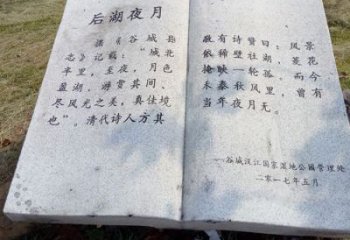 后湖夜月
据《谷城县
志》记载:“城北
半里,至夜,月色
益湖,游赏其间、
尽风光之美,真佳境
也”。清代诗人方其
敬有诗赞曰:风景
依稀壁社湖,菱花
掩映一轮孤。而今
未泰秋风里,曾有
当年夜月无。
—谷城汉江国家湿地公园管理处
二零一七年五月